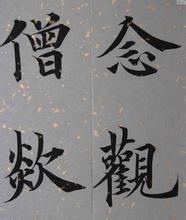 念觀
僧欻